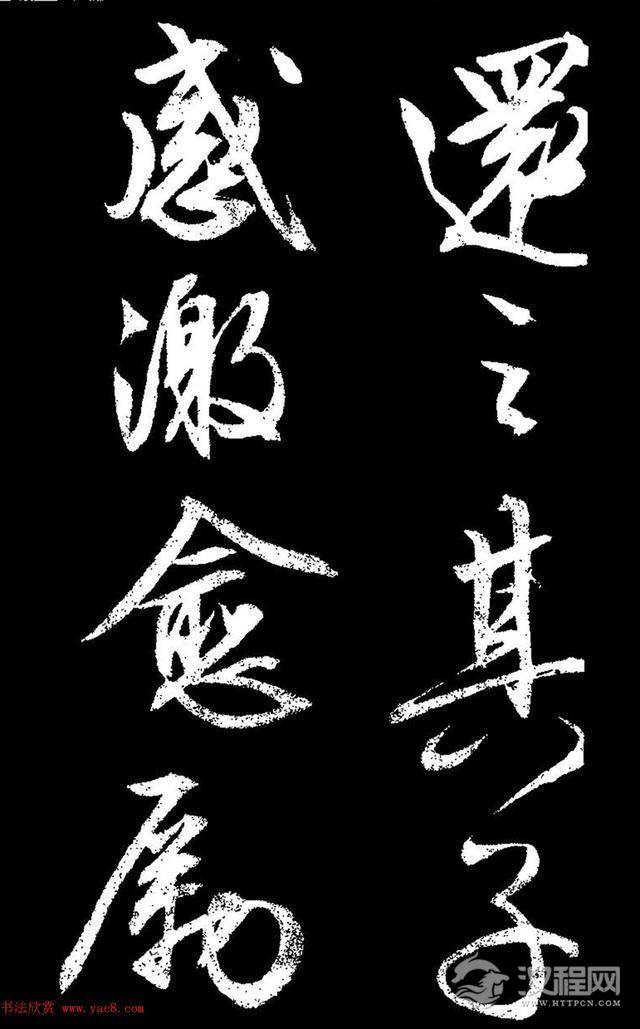 還之其子
感激愈
汉程网
WWW.HTTPCN.COM
书法欣赏 www.yac8.com